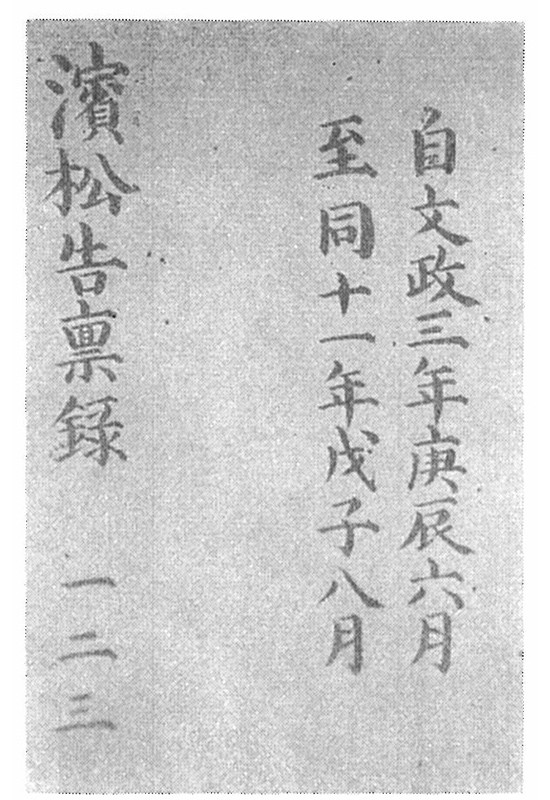 自文政三年庚辰六月
至同十一年戊子八月
濱松告稟録 一二三